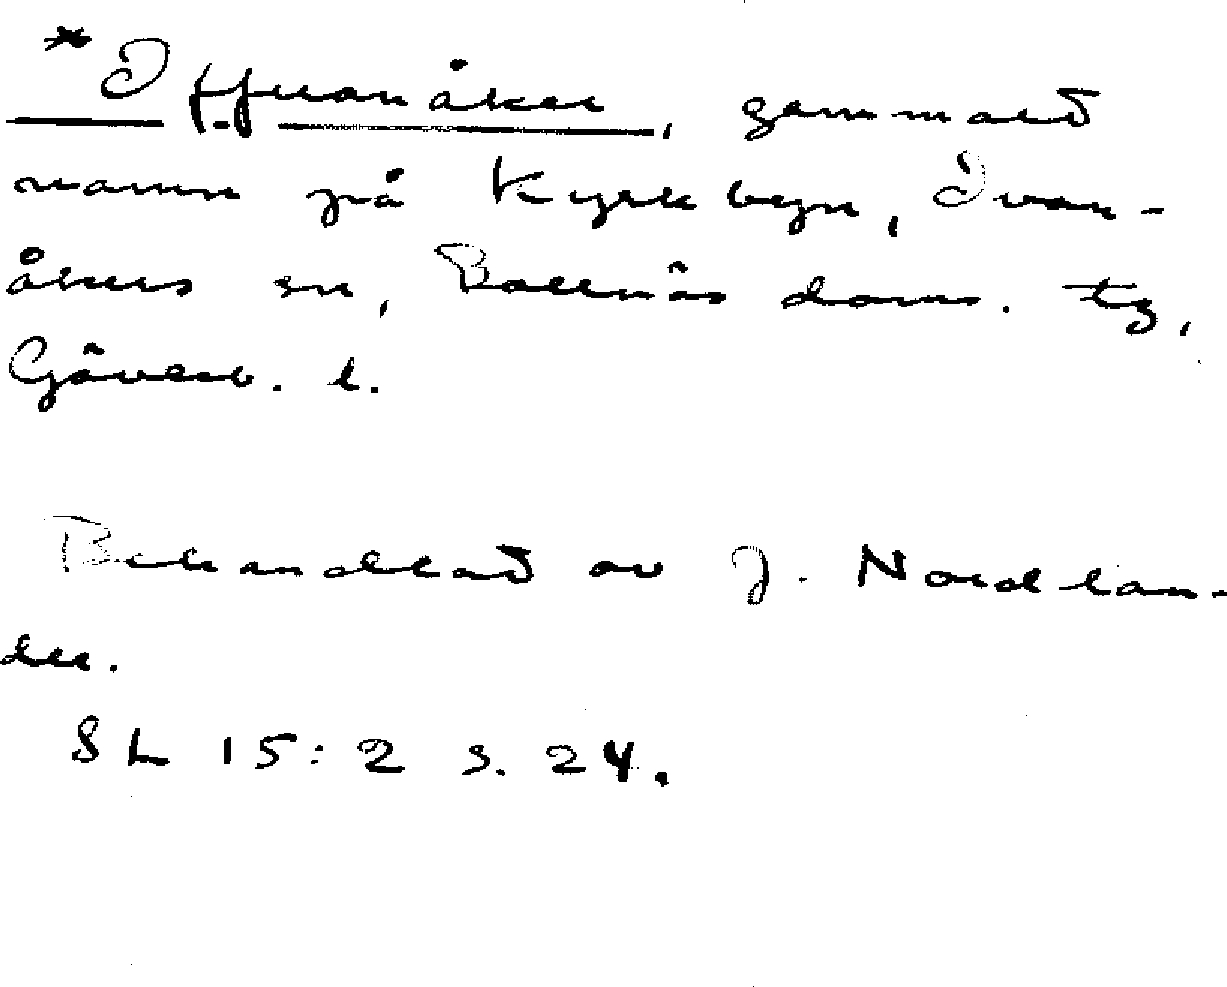 *Offuanåker, gammalt
namn på Kyrkbyn, Ovan-
åkers sn, Bollnäs doms. tg,
Gävleb. l.
Behandlat av J. Nordlan-
der.
SL 15:2 s. 24.